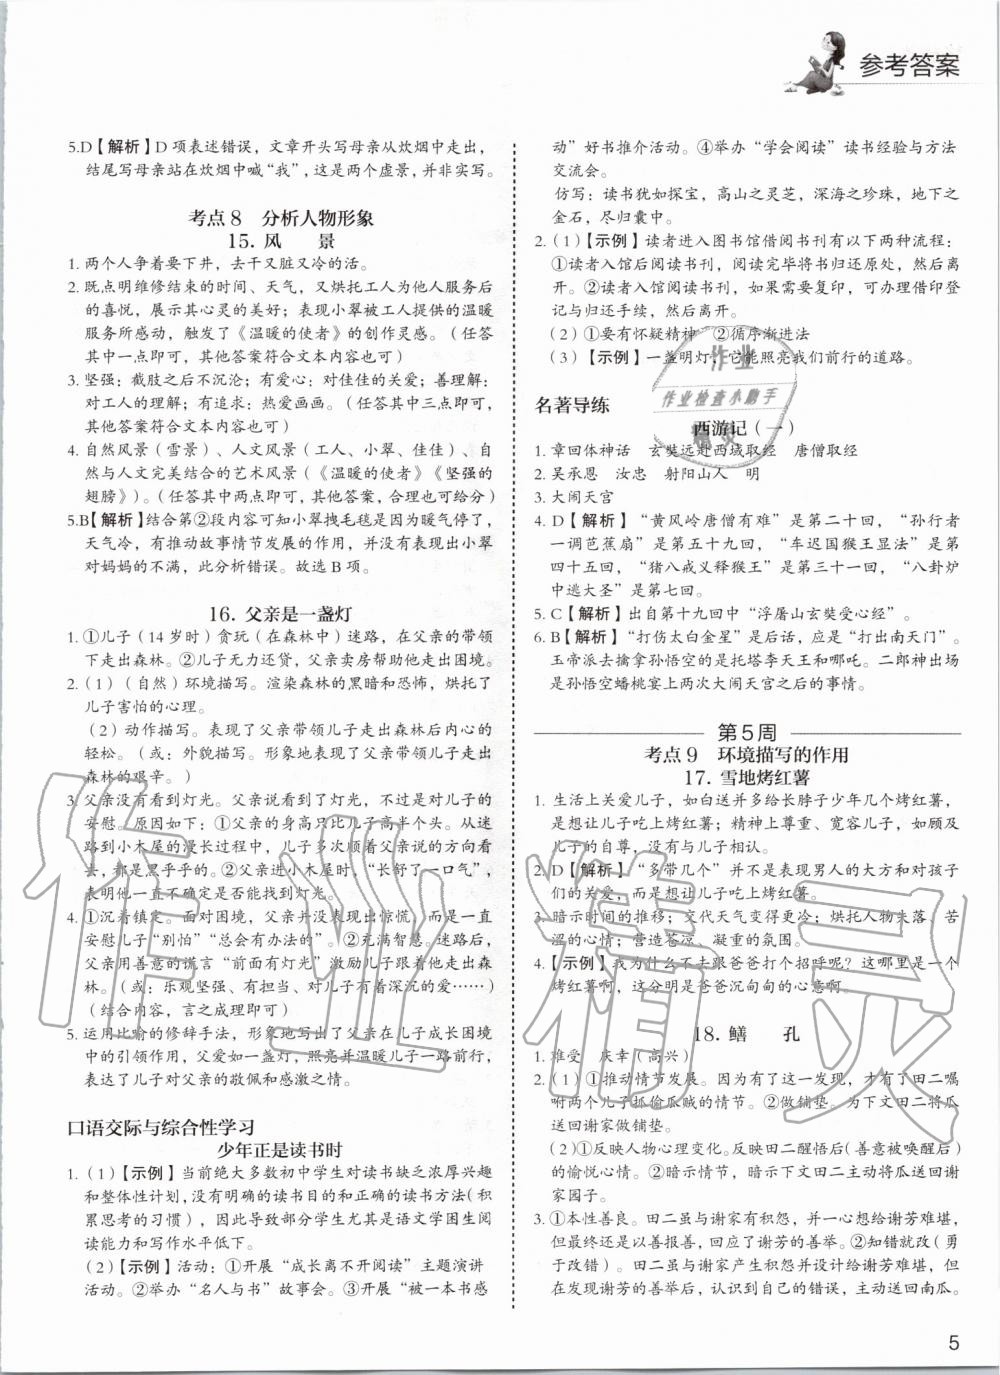 参考答案
5.D【解析】D 项表述错误，文章开头写母亲从炊烟中走出，
结尾写母亲站在炊烟中喊“我”，这是两个虚景，并非实写。
考点 8　分析人物形象
15. 风　　景
1. 两个人争着要下井，去干又脏又冷的活。
2. 既点明维修结束的时间、天气，又烘托工人为他人服务后
的喜悦，展示其心灵的美好；表现小翠被工人提供的温暖
服务所感动，触发了《温暖的使者》的创作灵感。（任答
其中一点即可，其他答案符合文本内容也可）
3. 坚强：截肢之后不沉沦；有爱心：对佳佳的关爱；善理解：
对工人的理解；有追求：热爱画画。（任答其中三点即可，
其他答案符合文本内容也可）
4. 自然风景（雪景）、人文风景（工人、小翠、佳佳）、自
然与人文完美结合的艺术风景（《温暖的使者》《坚强的
翅膀》）。（任答其中两点即可，其他答案，合理也可给分）
5.B【解析】结合第②段内容可知小翠拽毛毯是因为暖气停了，
天气冷，有推动故事情节发展的作用，并没有表现出小翠
对妈妈的不满，此分析错误。故选 B 项。
16. 父亲是一盏灯
1. ①儿子（14 岁时）贪玩（在森林中）迷路，在父亲的带领
下走出森林。②儿子无力还贷，父亲卖房帮助他走出困境。
2.（1）（自然）环境描写。渲染森林的黑暗和恐怖，烘托了
儿子害怕的心理。
（2）动作描写。表现了父亲带领儿子走出森林后内心的
轻松。（或：外貌描写。形象地表现了父亲带领儿子走出
森林的艰辛。）
3. 父亲没有看到灯光。父亲说看到了灯光，不过是对儿子的
安慰。原因如下：①父亲的身高只比儿子高半个头。从迷
路到小木屋的漫长过程中，儿子多次顺着父亲说的方向看
去，都是黑乎乎的。②父亲进小木屋时，“长舒了一口气”，
表明他一直不确定是否能找到灯光。
4. ①沉着镇定。面对困境，父亲并没有表现出惊慌，而是一直
安慰儿子“别怕”“总会有办法的”。②充满智慧。迷路后，
父亲用善意的谎言“前面有灯光”激励儿子跟着他走出森
林。（或：乐观坚强、有担当、对儿子深沉的爱……）
（结合内容，言之成理即可）
5. 运用比喻的修辞手法，形象地写出了父亲在儿子成长困境
中的引领作用，父爱如一盏灯，照亮并温暖儿子一路前行，
表达了儿子对父亲的敬佩和感激之情。
口语交际与综合性学习
少年正是读书时
1.（1）【示例】当前绝大多数初中学生对读书缺乏浓厚兴趣
和整体性计划，没有明确的读书目的和正确的读书方法（积
累思考的习惯），因此导致部分学生尤其是语文学困生阅
读能力和写作水平低下。
（2）【示例】活动：①开展“成长离不开阅读”主题演讲
活动。②举办“名人与书”故事会。③开展“被一本书感
动”好书推介活动。④举办“学会阅读”读书经验与方法
交流会。
仿写：读书犹如探宝，高山之灵芝，深海之珍珠，地下之
金石，尽归囊中。
2.（1）【示例】读者进入图书馆借阅书刊有以下两种流程：
①读者入馆后阅读书刊，阅读完毕将书归还原处，然后离
开。②读者入馆阅读书刊，如果需要复印，可办理借印登
记与归还手续，然后离开。
（2）①要有怀疑精神　②循序渐进法
（3）【示例】一盏明灯，它能照亮我们前行的道路。
名著导练
西游记（一）
1. 章回体神话　玄奘远赴西域取经　唐僧取经
2. 吴承恩　汝忠　射阳山人　明
3. 大闹天宫
4. D【解析】“黄风岭唐僧有难”是第二十回，“孙行者
一调芭蕉扇”是第五十九回，“车迟国猴王显法”是第
四十五回，“猪八戒义释猴王”是第三十一回，“八卦炉
中逃大圣”是第七回。
5. C【解析】出自第十九回中“浮屠山玄奘受心经”。
6. B【解析】“打伤太白金星”是没有的，应是“打出南天门”。
玉帝派去擒拿孙悟空的是托塔李天王和哪吒。二郎神出场
是孙悟空蟠桃宴上两次大闹天宫之后的事情。
第 5 周
考点 9　环境描写的作用
17. 雪地烤红薯
1. 生活上关爱儿子，如白送并多给长脖子少年几个烤红薯，
是想让儿子吃上烤红薯；精神上尊重、宽容儿子，如顾及
儿子的自尊，没有与儿子相认。
2. D【解析】“多带几个”并不表现男人的大方和对孩子
们的关爱，而是想让儿子吃上烤红薯
3. 暗示时间的推移；交代天气变得更冷；烘托人物失落、苦
涩的心情；营造苍凉、凝重的氛围。
4.【示例】我为什么不去跟爸爸打个招呼呢？这哪里是一个
烤红薯啊，这分明是爸爸沉甸甸的心意啊。
18. 鳝　　孔
1. 难受　庆幸（高兴）
2.（1）①推动情节发展。因为有了这一描写，才有了田二嘱
咐两个儿子抓偷瓜贼的情节。②做铺垫。为下文田二将瓜
送回谢家做铺垫。
（2）①反映人物心理变化。反映田二醒悟后（善意被唤醒后）
的愉悦心情。②暗示情节，暗示下文田二主动将瓜送回谢
家园子。
3. ①本性善良。田二虽与谢家有积怨，并一心想给谢芳难堪，
但最终还是以善报善，回应了谢芳的善举。②知错就改（勇
于改错）。田二虽与谢家产生积怨，并想给谢芳难堪，但在
谢芳的善举后，认识到自己的错误，主动送回南瓜。
作业
作业检查小助手
精灵
作业精灵
5